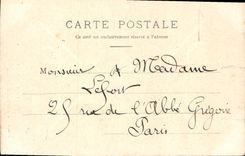 CARTE POSTALE
Ce côté est exclusivement réservé à l'adresse
Monsieur & Madame
Lefort
25 rue de l'Abbé Grégoire
Paris